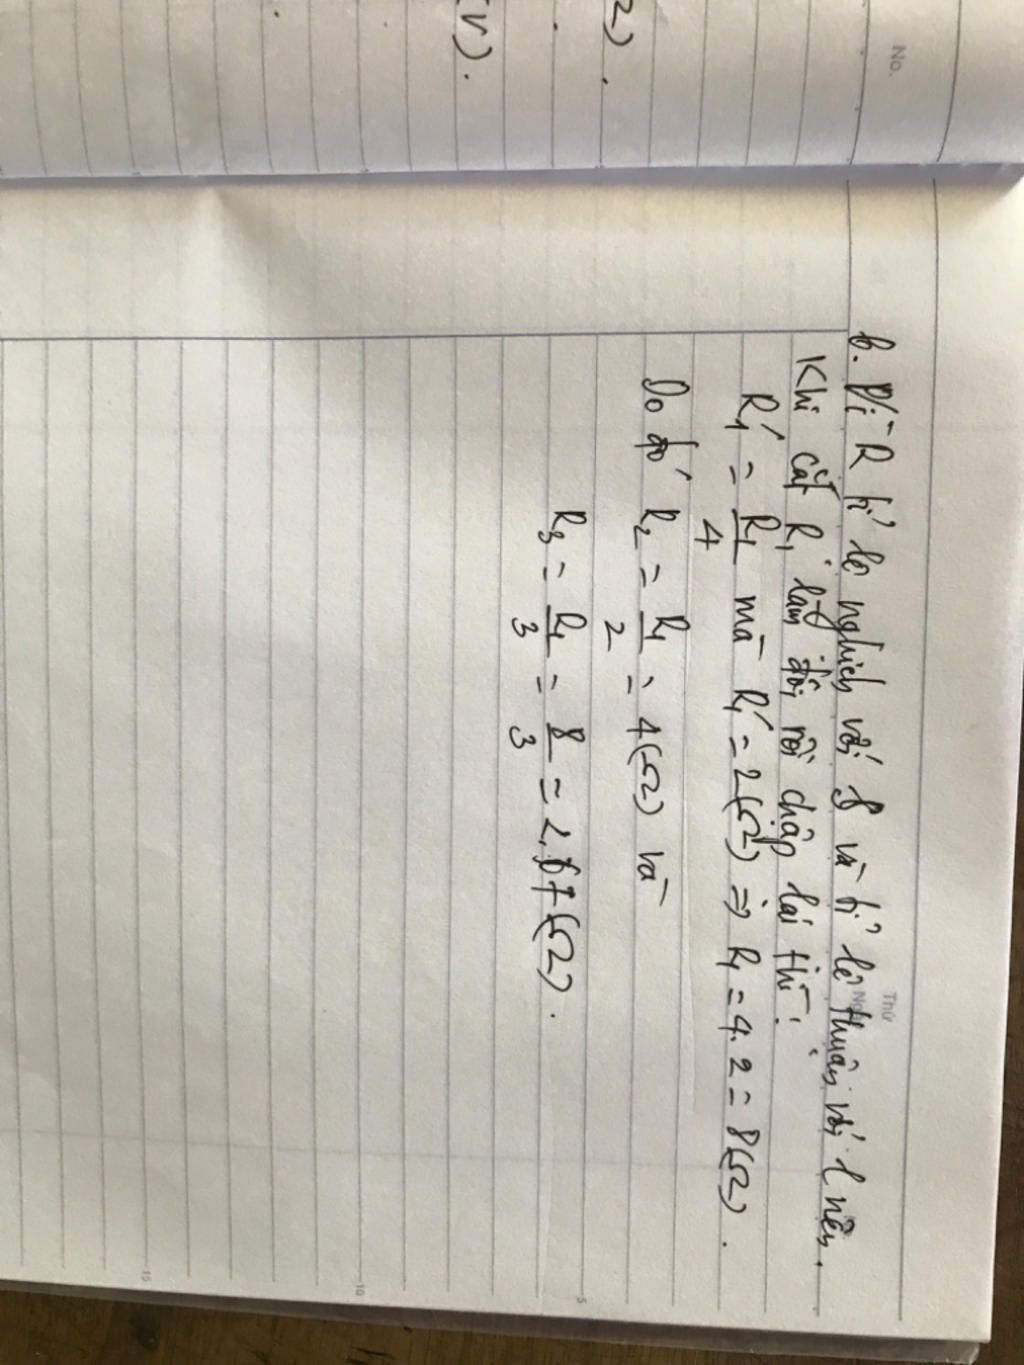 No.
Ω).
(V).
Thứ
Ngày
b. Vì R tỉ lệ nghịch với S và tỉ lệ thuận với l nên.
Khi cắt R₁ làm đôi rồi chập lại thì:
R₁' = R₁/4 mà R₁' = 2(Ω) ⇒ R₁ = 4.2 = 8(Ω).
Do đó R₂ = R₁/2 = 4(Ω) và
R₃ = R₁/3 = 8/3 = 2,67(Ω).
5
10
15